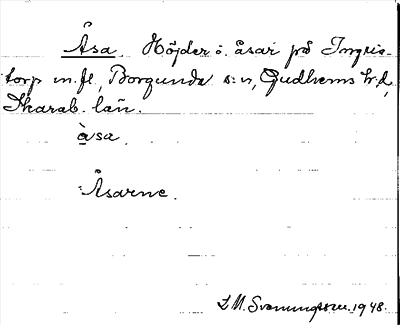 Åsa. Höjder o. åsar på Ingris-
torp m. fl., Borgunda s:n, Gudhems h:d,
Skarab. län.
àsa.
Åsarne.
L. M. Svenungsson. 1948.